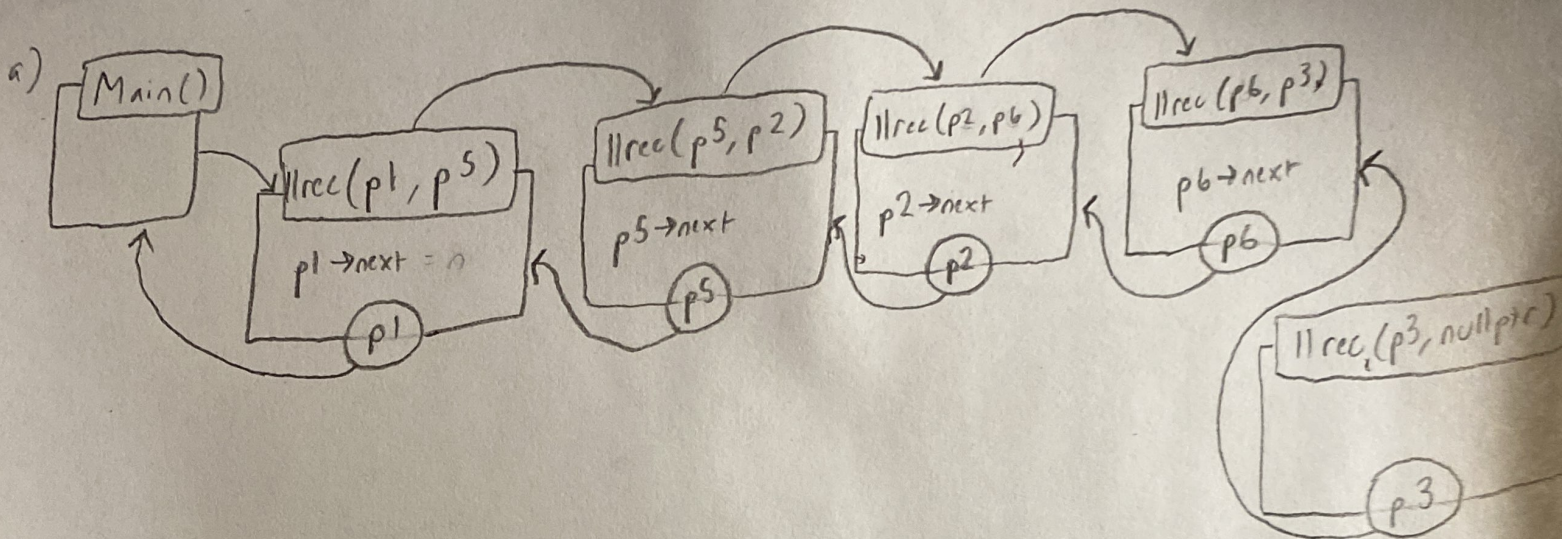 a)
Main()
llrec(p1, p5)
p1→next =
p1
llrec(p5, p2)
p5→next
p5
llrec(p2, p6)
p2→next
p2
llrec(p6, p3)
p6→next
p6
llrec(p3, nullptr)
p3